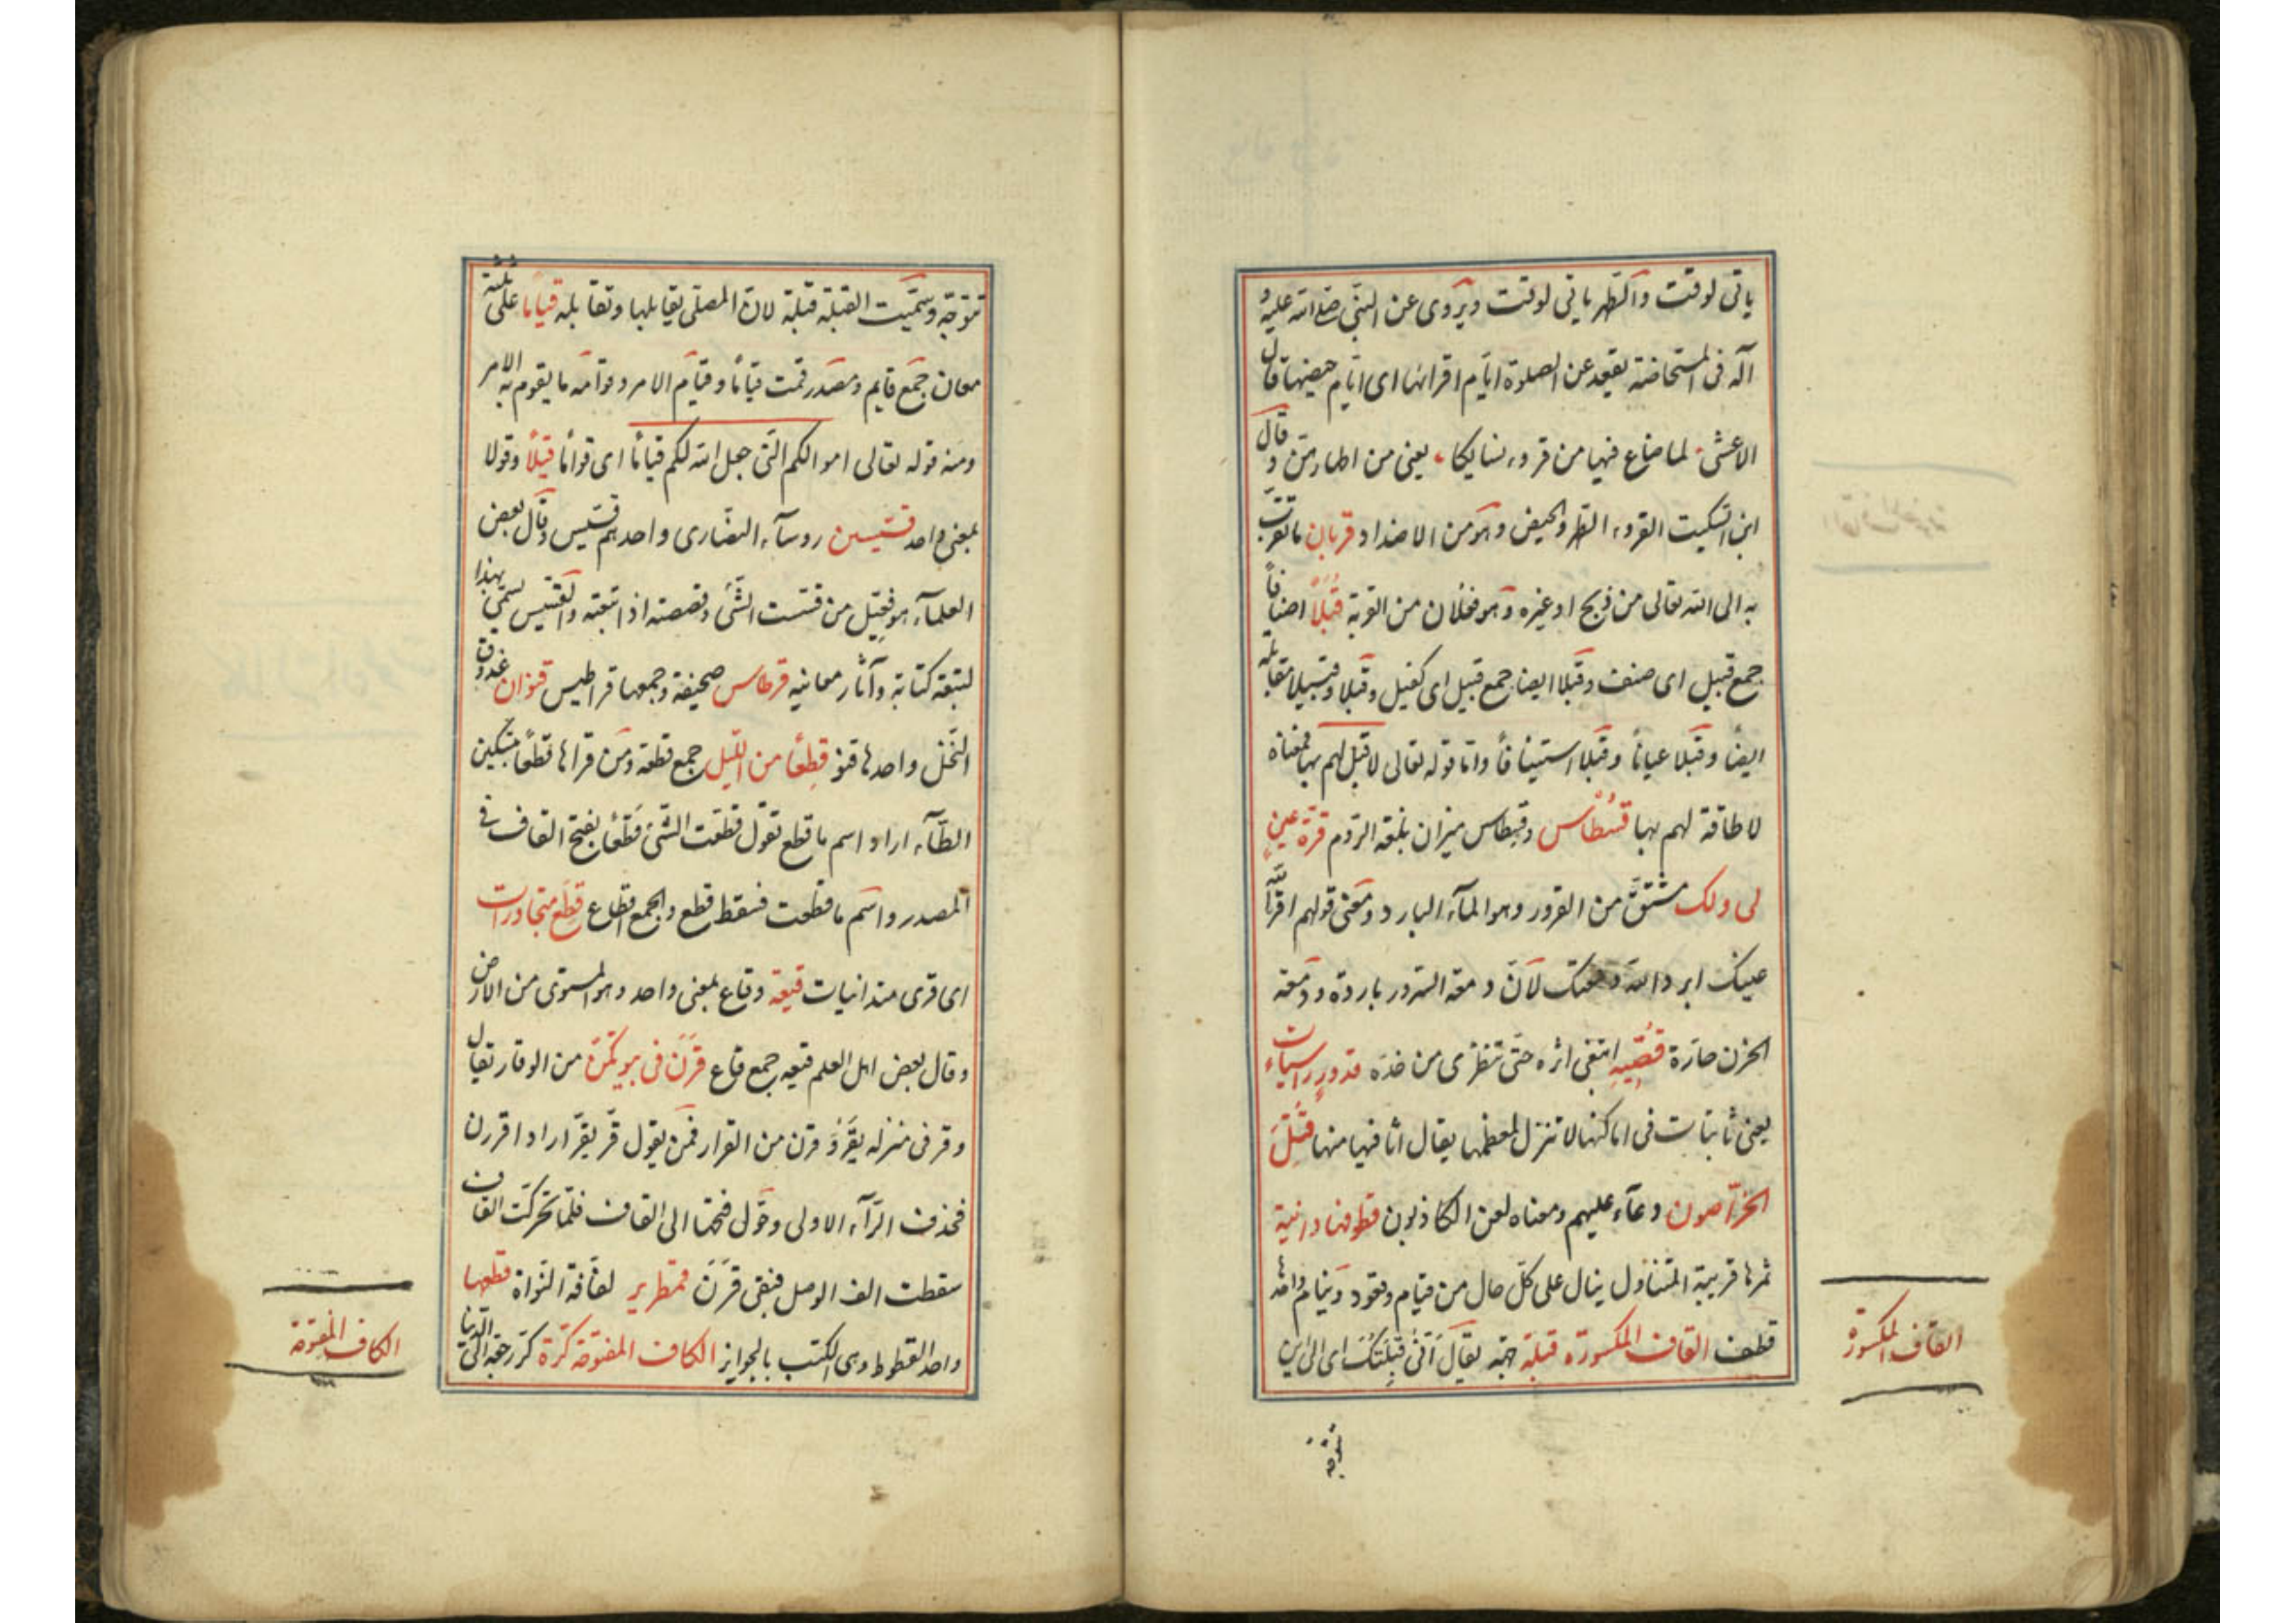 ياتى لوقت والطهر ياتى لوقت ويروى عن النبى صلى الله عليه و
آله فى المستحاضة تقعد عن الصلوة ايام اقرائها اى ايام حيضها قال
الاعشى لما ضاع فيها من قروء نسايكا يعنى من اطهارهن و قال
ابن السكيت القروء الطهر والحيض وهو من الاضداد قربان ما تقرب
به الى الله تعالى من ذبح او غيره وهو فعلان من القربة قُبُلاً اصنافاً
جمع قبيل اى صنف وقبلا ايضا جمع قبيل اى كفيل وقبلا وقبيلا مقابلة
ايضاً وقبلا عياناً وقبلا استينافاً واما قوله تعالى لا قبل لهم بها فمعناه
لا طاقة لهم بها قسطاس وقسطاس ميزان بلغة الروم قرة عينٍ
لى ولك مشتق من القرور وهو الماء البارد ومعنى قولهم اقر الله
عينك ابرد الله دمعتك لان دمعة السرور باردة ودمعة
الحزن حارة قصّيه اتبغى اثره حتى تنظرى من خذه قدور راسيات
يعنى ثابتات فى اماكنها لا تنزل لعظمها يقال اثافيها منها قُتِلَ
الخراصون دعاء عليهم ومعناه لعن الكاذبون قطوفها دانية
ثمرها قريبة المتناول ينال على كل حال من قيام وقعود ونيام واحدها
قطف القاف المكسورة قبلة جهة يقال اتى قبلتك اى الى اين
القاف المكسورة
تتوجه
تتوجه وسميت القبلة قبلة لان المصلى يقابلها وتقابله قياما على ثلثة
معان جمع قايم ومصدر قمت قياماً وقيام الامر وقوامه ما يقوم به الامر
ومنه قوله تعالى اموالكم التى جعل الله لكم قياماً اى قواماً قيلاً وقولا
بمعنى واحد قسيسين روسآء النصارى واحدهم قسيس وقال بعض
العلمآء هو فعيل من قسست الشئ وقصصته اذا تتبعته والقسيس سمى بهذا
لتبعه كتابه وآثار معانيه قرطاس صحيفة وجمعها قراطيس قنوان عذوق
النخل واحدها قنو قطعاً من الليل جمع قطعة ومن قراها قطعاً بتسكين
الطآء اراد اسم ما قطع تقول قطعت الشئ قطعاً بفتح القاف فى
المصدر واسم ما قطعت فسقط قطع والجمع اقطاع قطع متجاورات
اى قرى متدانيات قيعة وقاع بمعنى واحد وهو المستوى من الارض
وقال بعض اهل العلم قيعه جمع قاع قرن فى بيوتكن من الوقار يقال
وقر فى منزله يقر وقرن من القرار فمن يقول قر يقر اراد اقررن
فحذف الرآء الاولى وحول فتحها الى القاف فلما تحركت القاف
سقطت الف الوصل فبقى قرن قمطرير لفافة النواة قطعها
واحد القطوط وهى الكتب بالجوايز الكاف المفتوحة كرة
الكاف المفتوحة